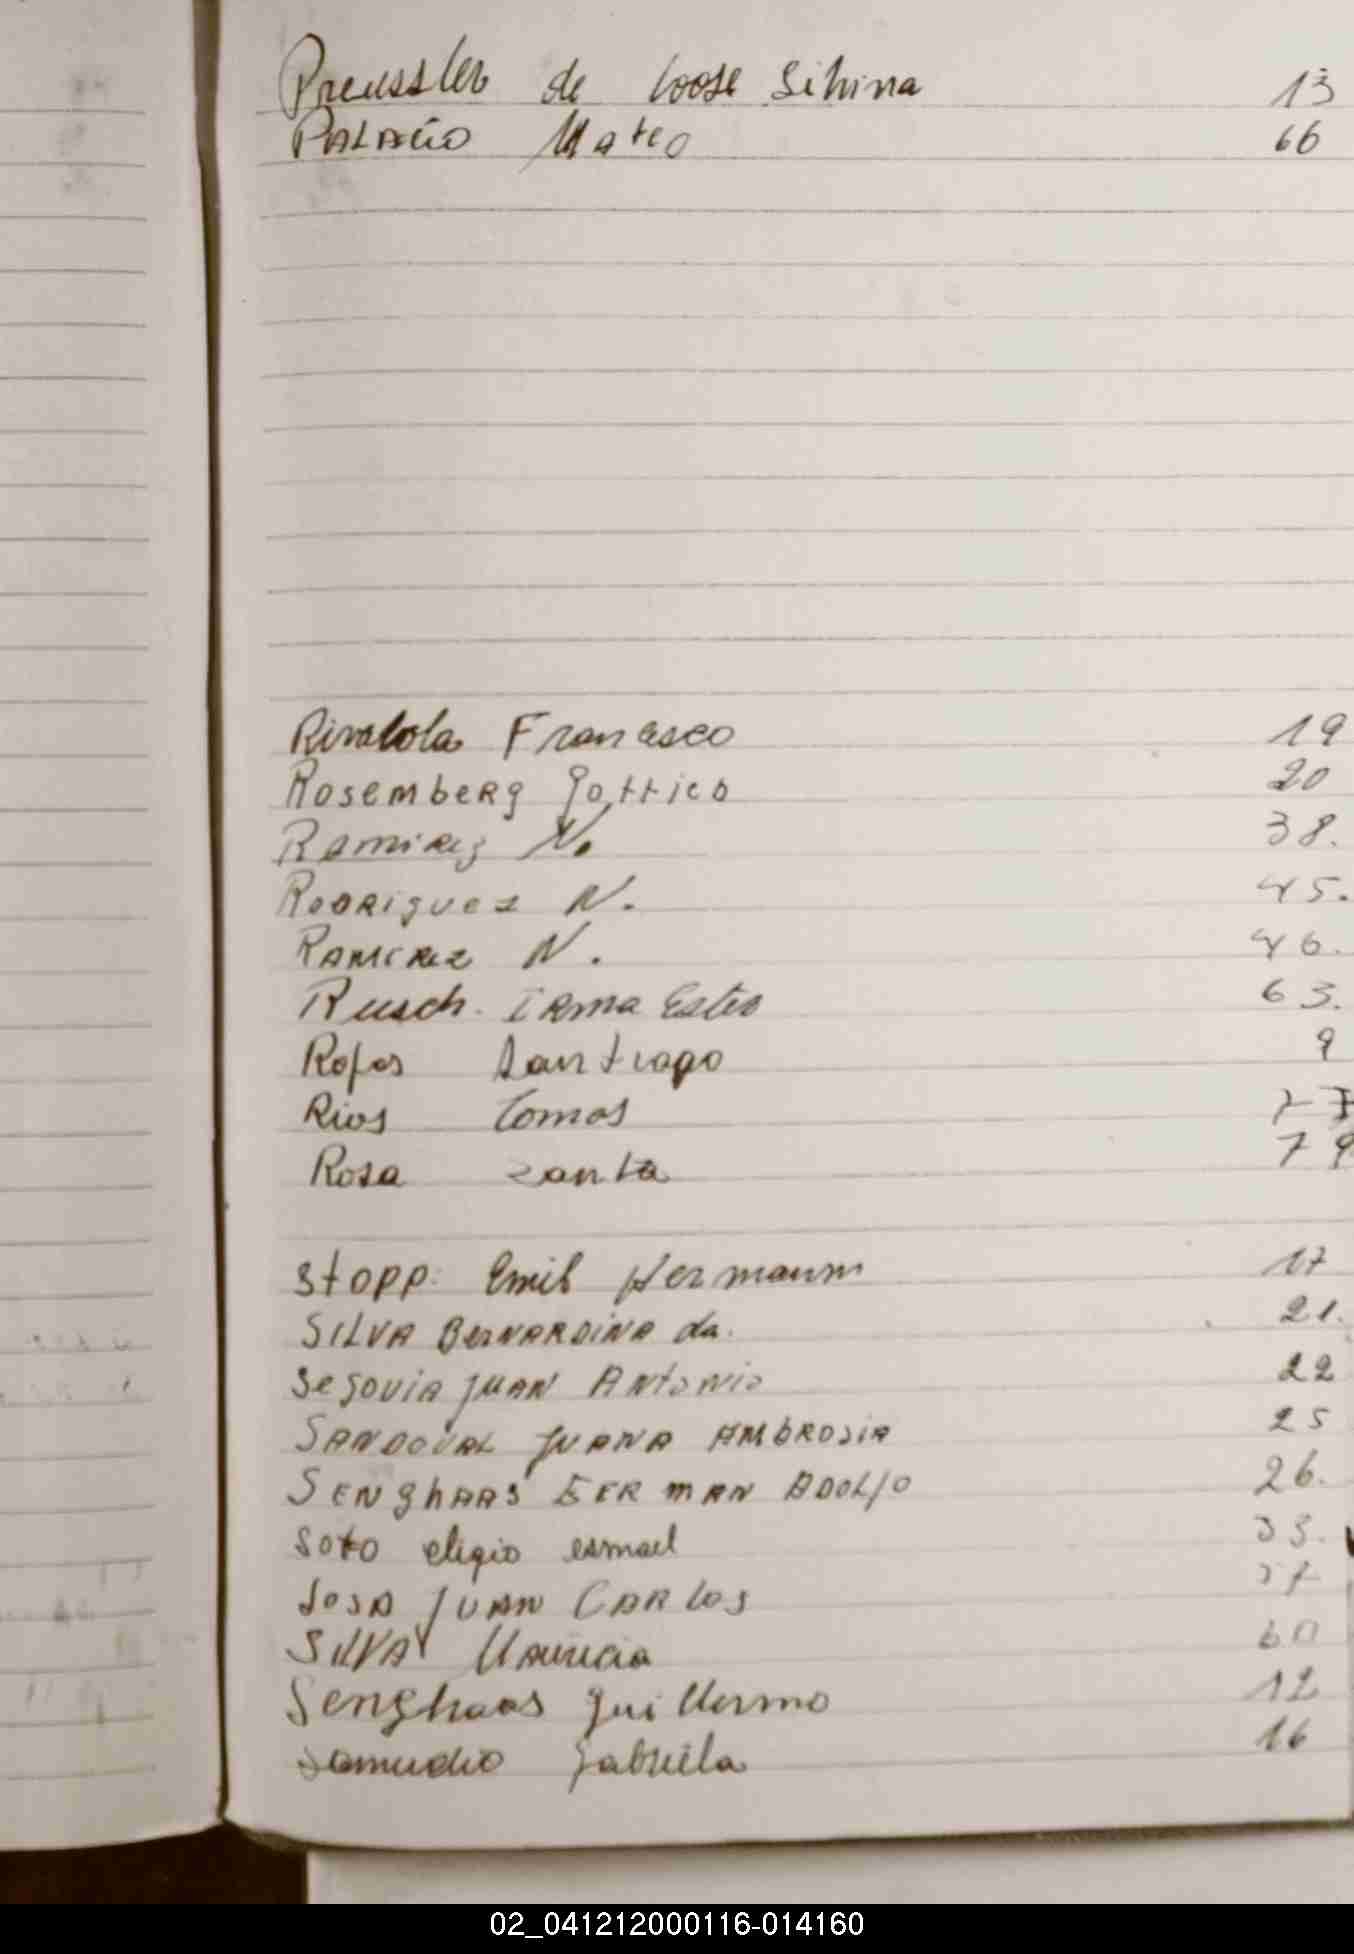 Preussler de Loose Silvina 13
PALACIO Mateo 66
Rivalola Francisco 19
Rosemberg Gottico 20
Ramirez N. 38.
RODRiguez N. 45.
RAMIREZ N. 46.
Rusch. IRMA Ester 63.
Rojas Santiago 9
Rios Tomas 77
Rosa Zanta 79
Stopp: Emil Hermann 17
SILVA BERNARDINA da. 21.
Segovia JUAN Antonio 22
SANDOVAL JUANA AMBROSIA 25
SENghAAS GERMAN ADOLfO 26.
Soto eligio esmael 33.
SOSA JUAN CARLOS 37
SILVA Mauricia 60
Senghaas Guillermo 12
Samudio Gabriela 16
02_041212000116-014160